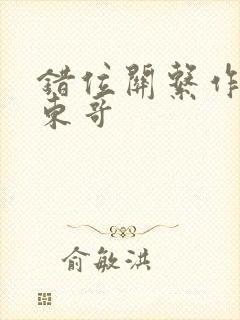 錯位關繫作
東哥
俞敏洪